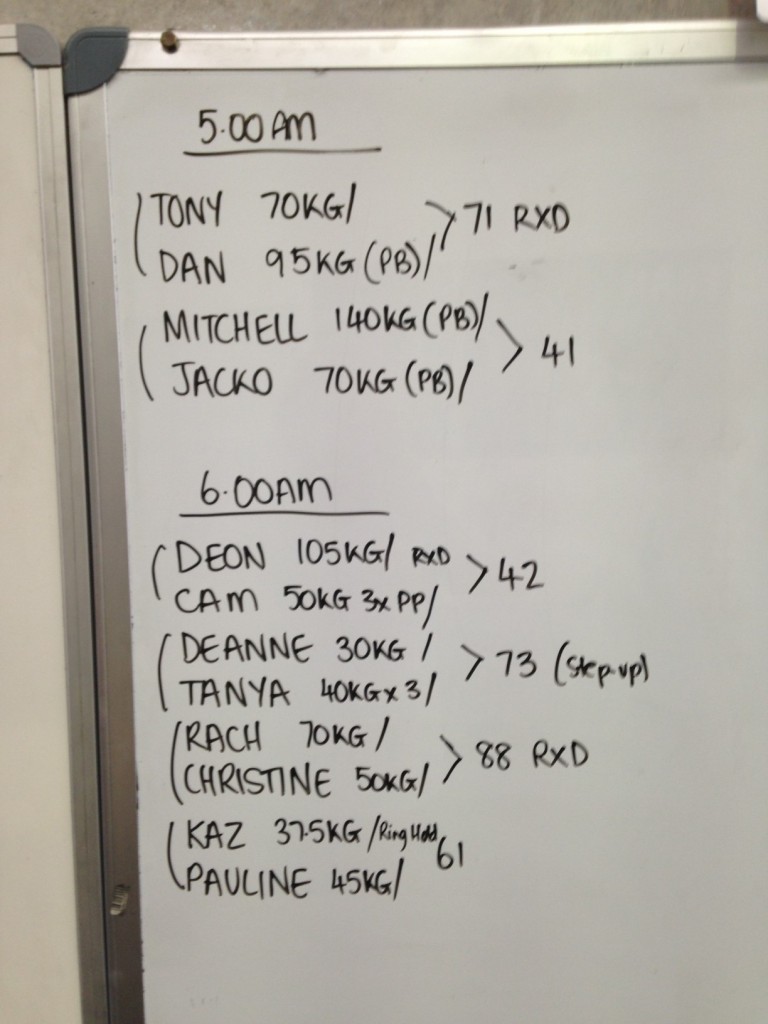 5.00AM
TONY 70KG/ > 71 RXD
DAN 95KG (PB)/
MITCHELL 140KG (PB)/ > 41
JACKO 70KG (PB)/
6.00AM
DEON 105KG/ RXD > 42
CAM 50KG 3x PP/
DEANNE 30KG / > 73 (Step-up)
TANYA 40KG x 3/
RACH 70KG / > 88 RXD
CHRISTINE 50KG/
KAZ 37.5KG /Ring Hold 61
PAULINE 45KG/